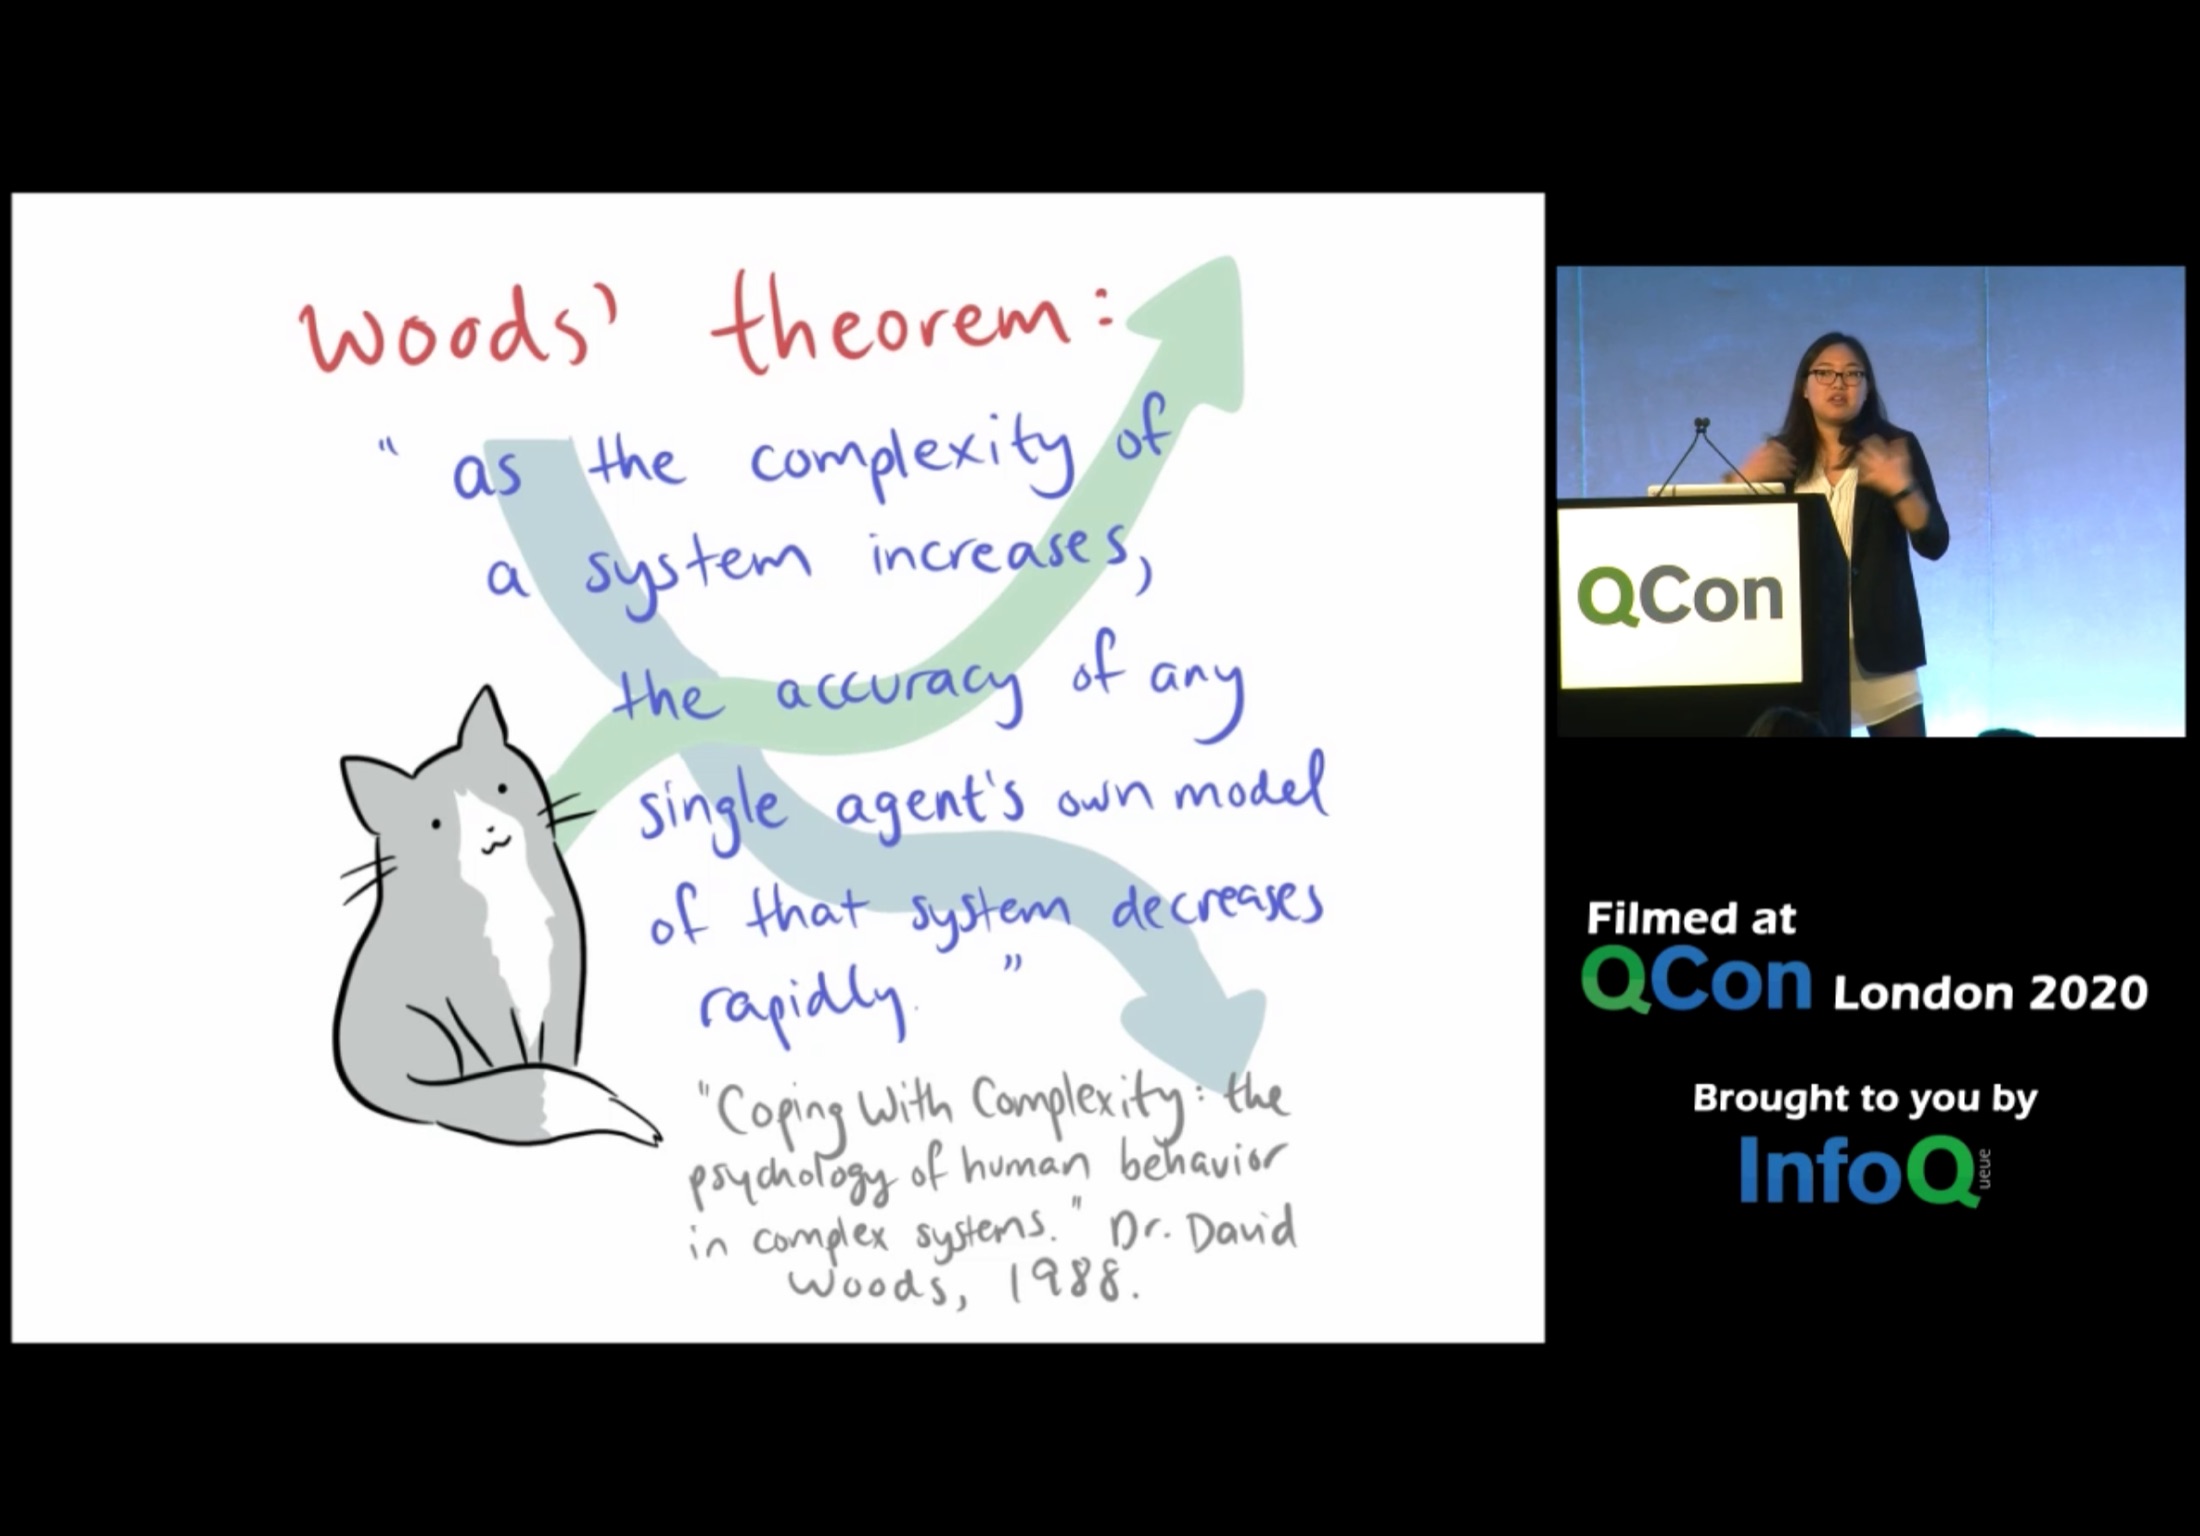 Woods' theorem:
" as the complexity of
a system increases,
the accuracy of any
single agent's own model
of that system decreases
rapidly. "
"Coping With Complexity: the
psychology of human behavior
in complex systems." Dr. David
Woods, 1988.
QCon
Filmed at
QCon London 2020
Brought to you by
InfoQ
ueue